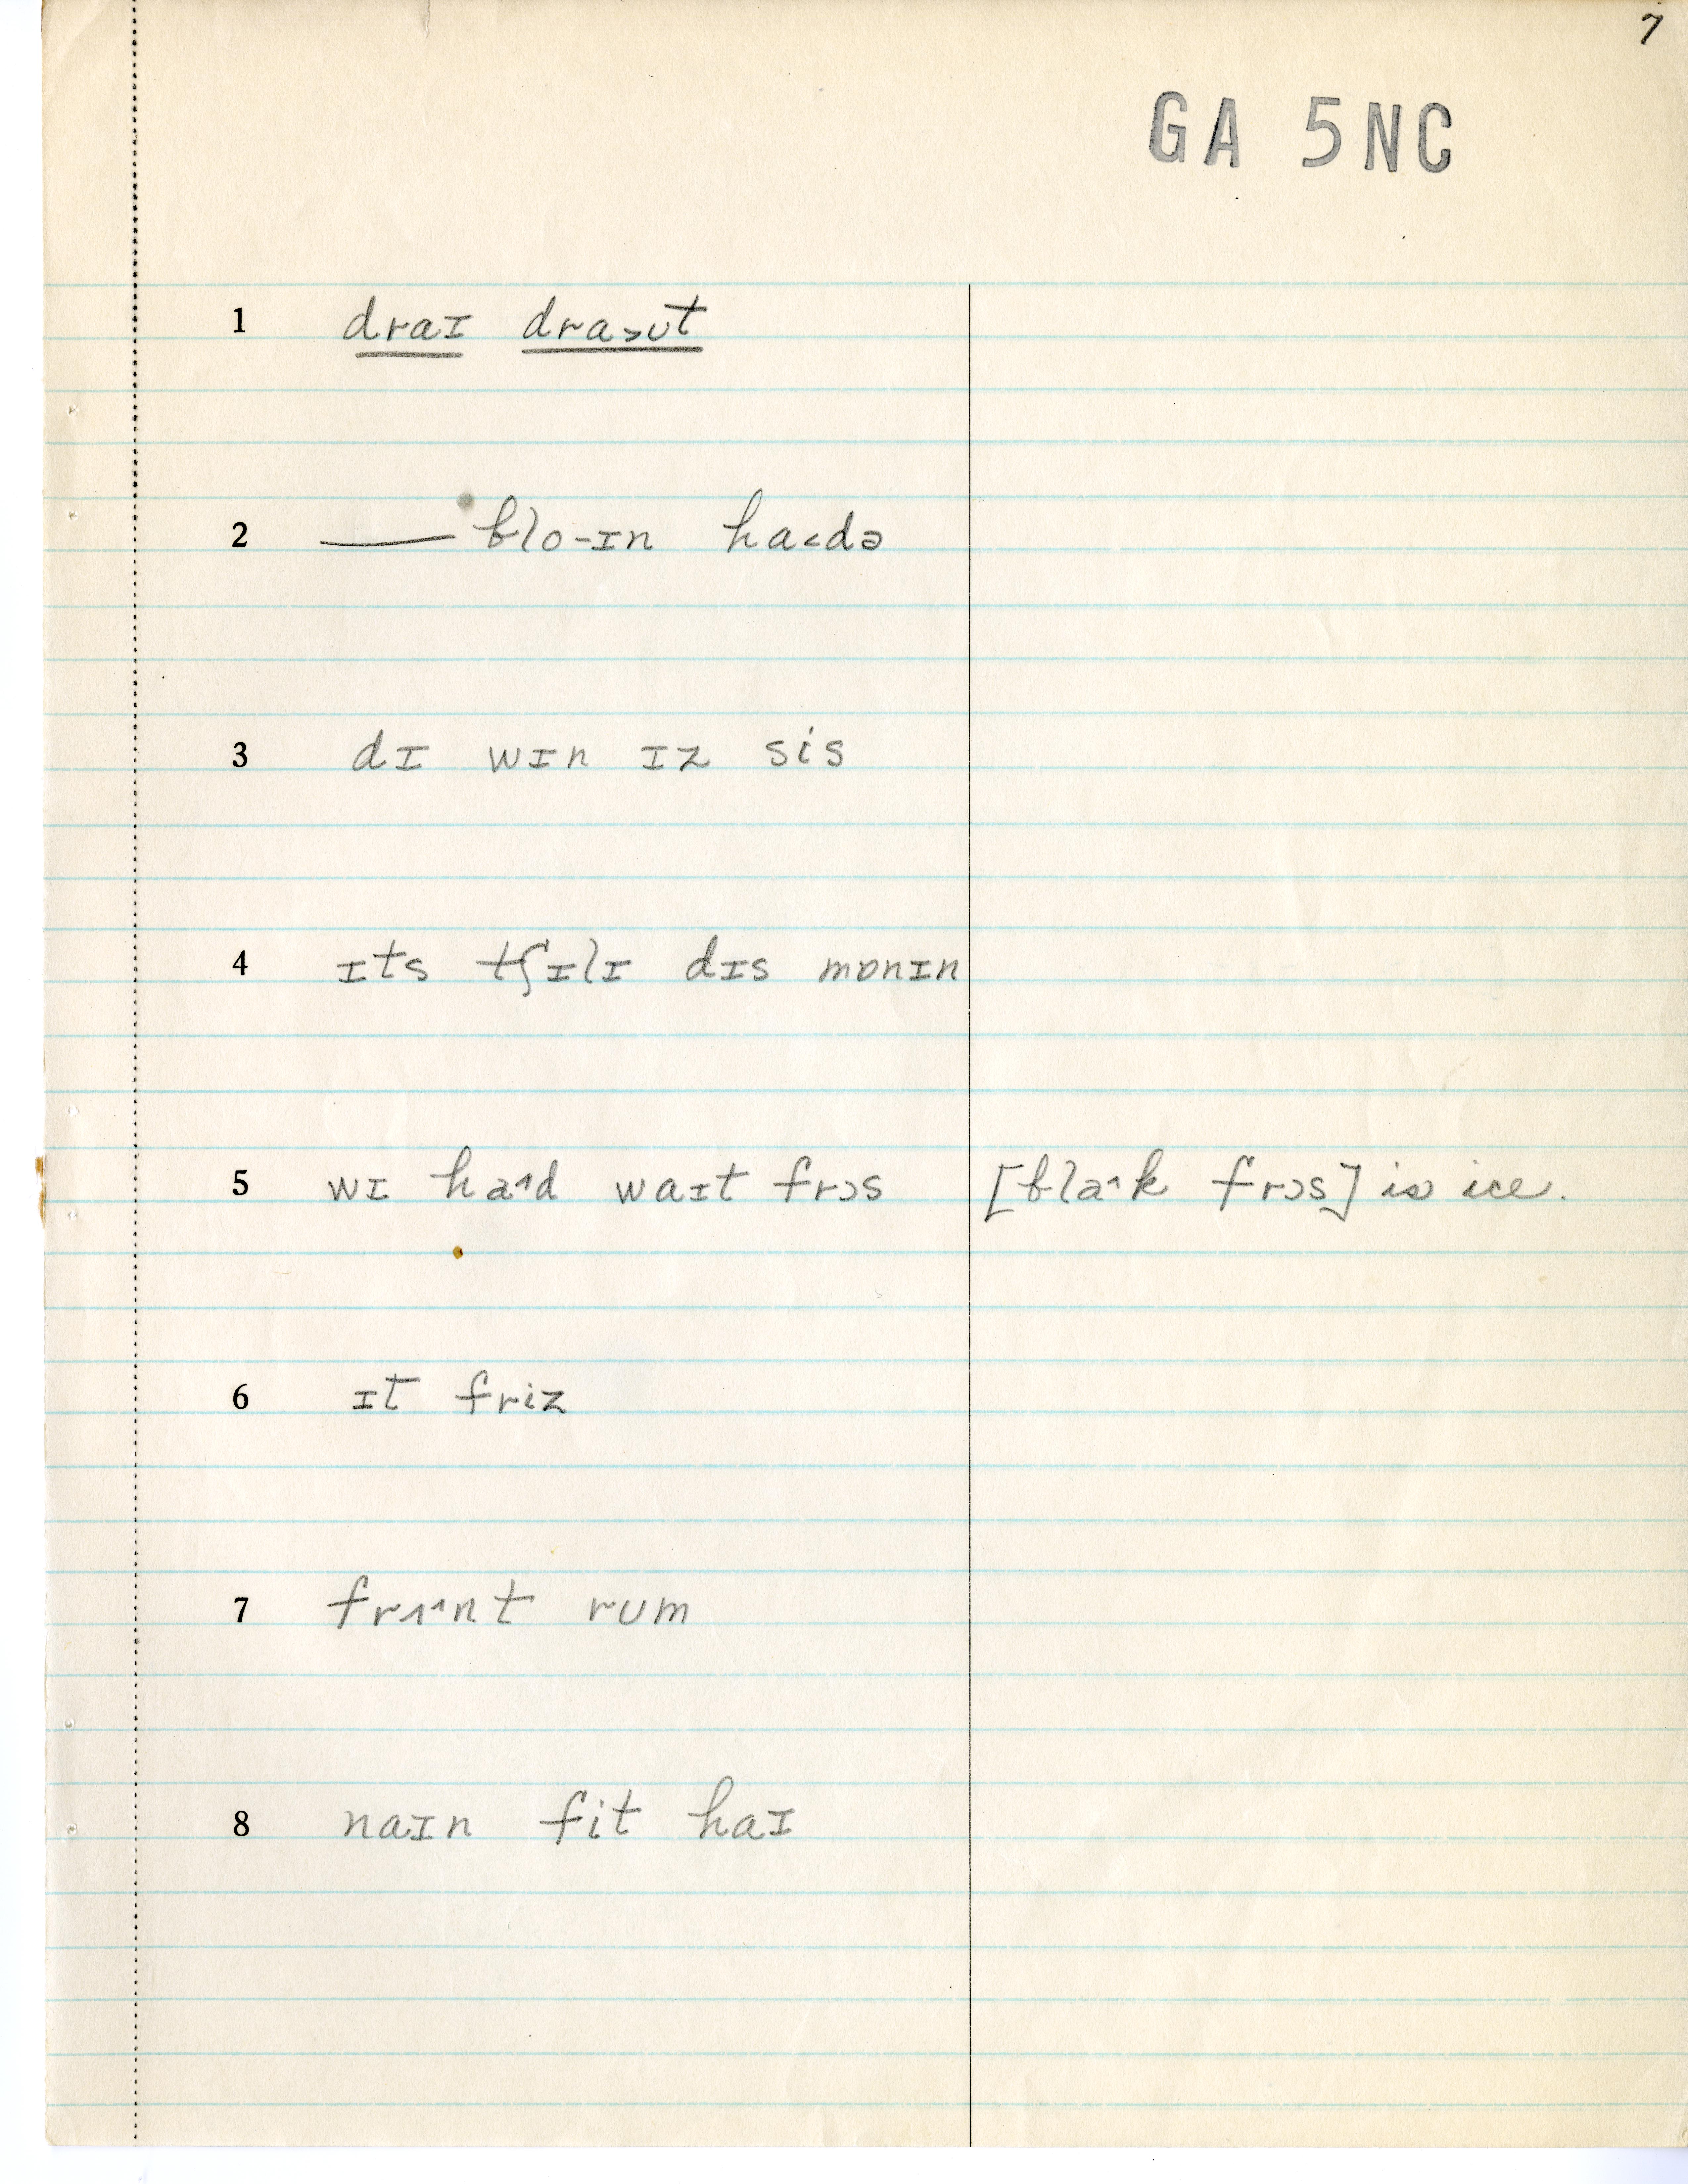 7
GA 5NC
1 draɪ dra˃ʊt
2 —— blo-ɪn ha˂də
3 dɪ wɪn ɪz sis
4 ɪts tʃɪlɪ dɪs mɒnɪn
5 wɪ ha˄d waɪt frɔs [bla˄k frɔs] is ice.
6 ɪt friz
7 frʌ˄nt rum
8 naɪn fit haɪ